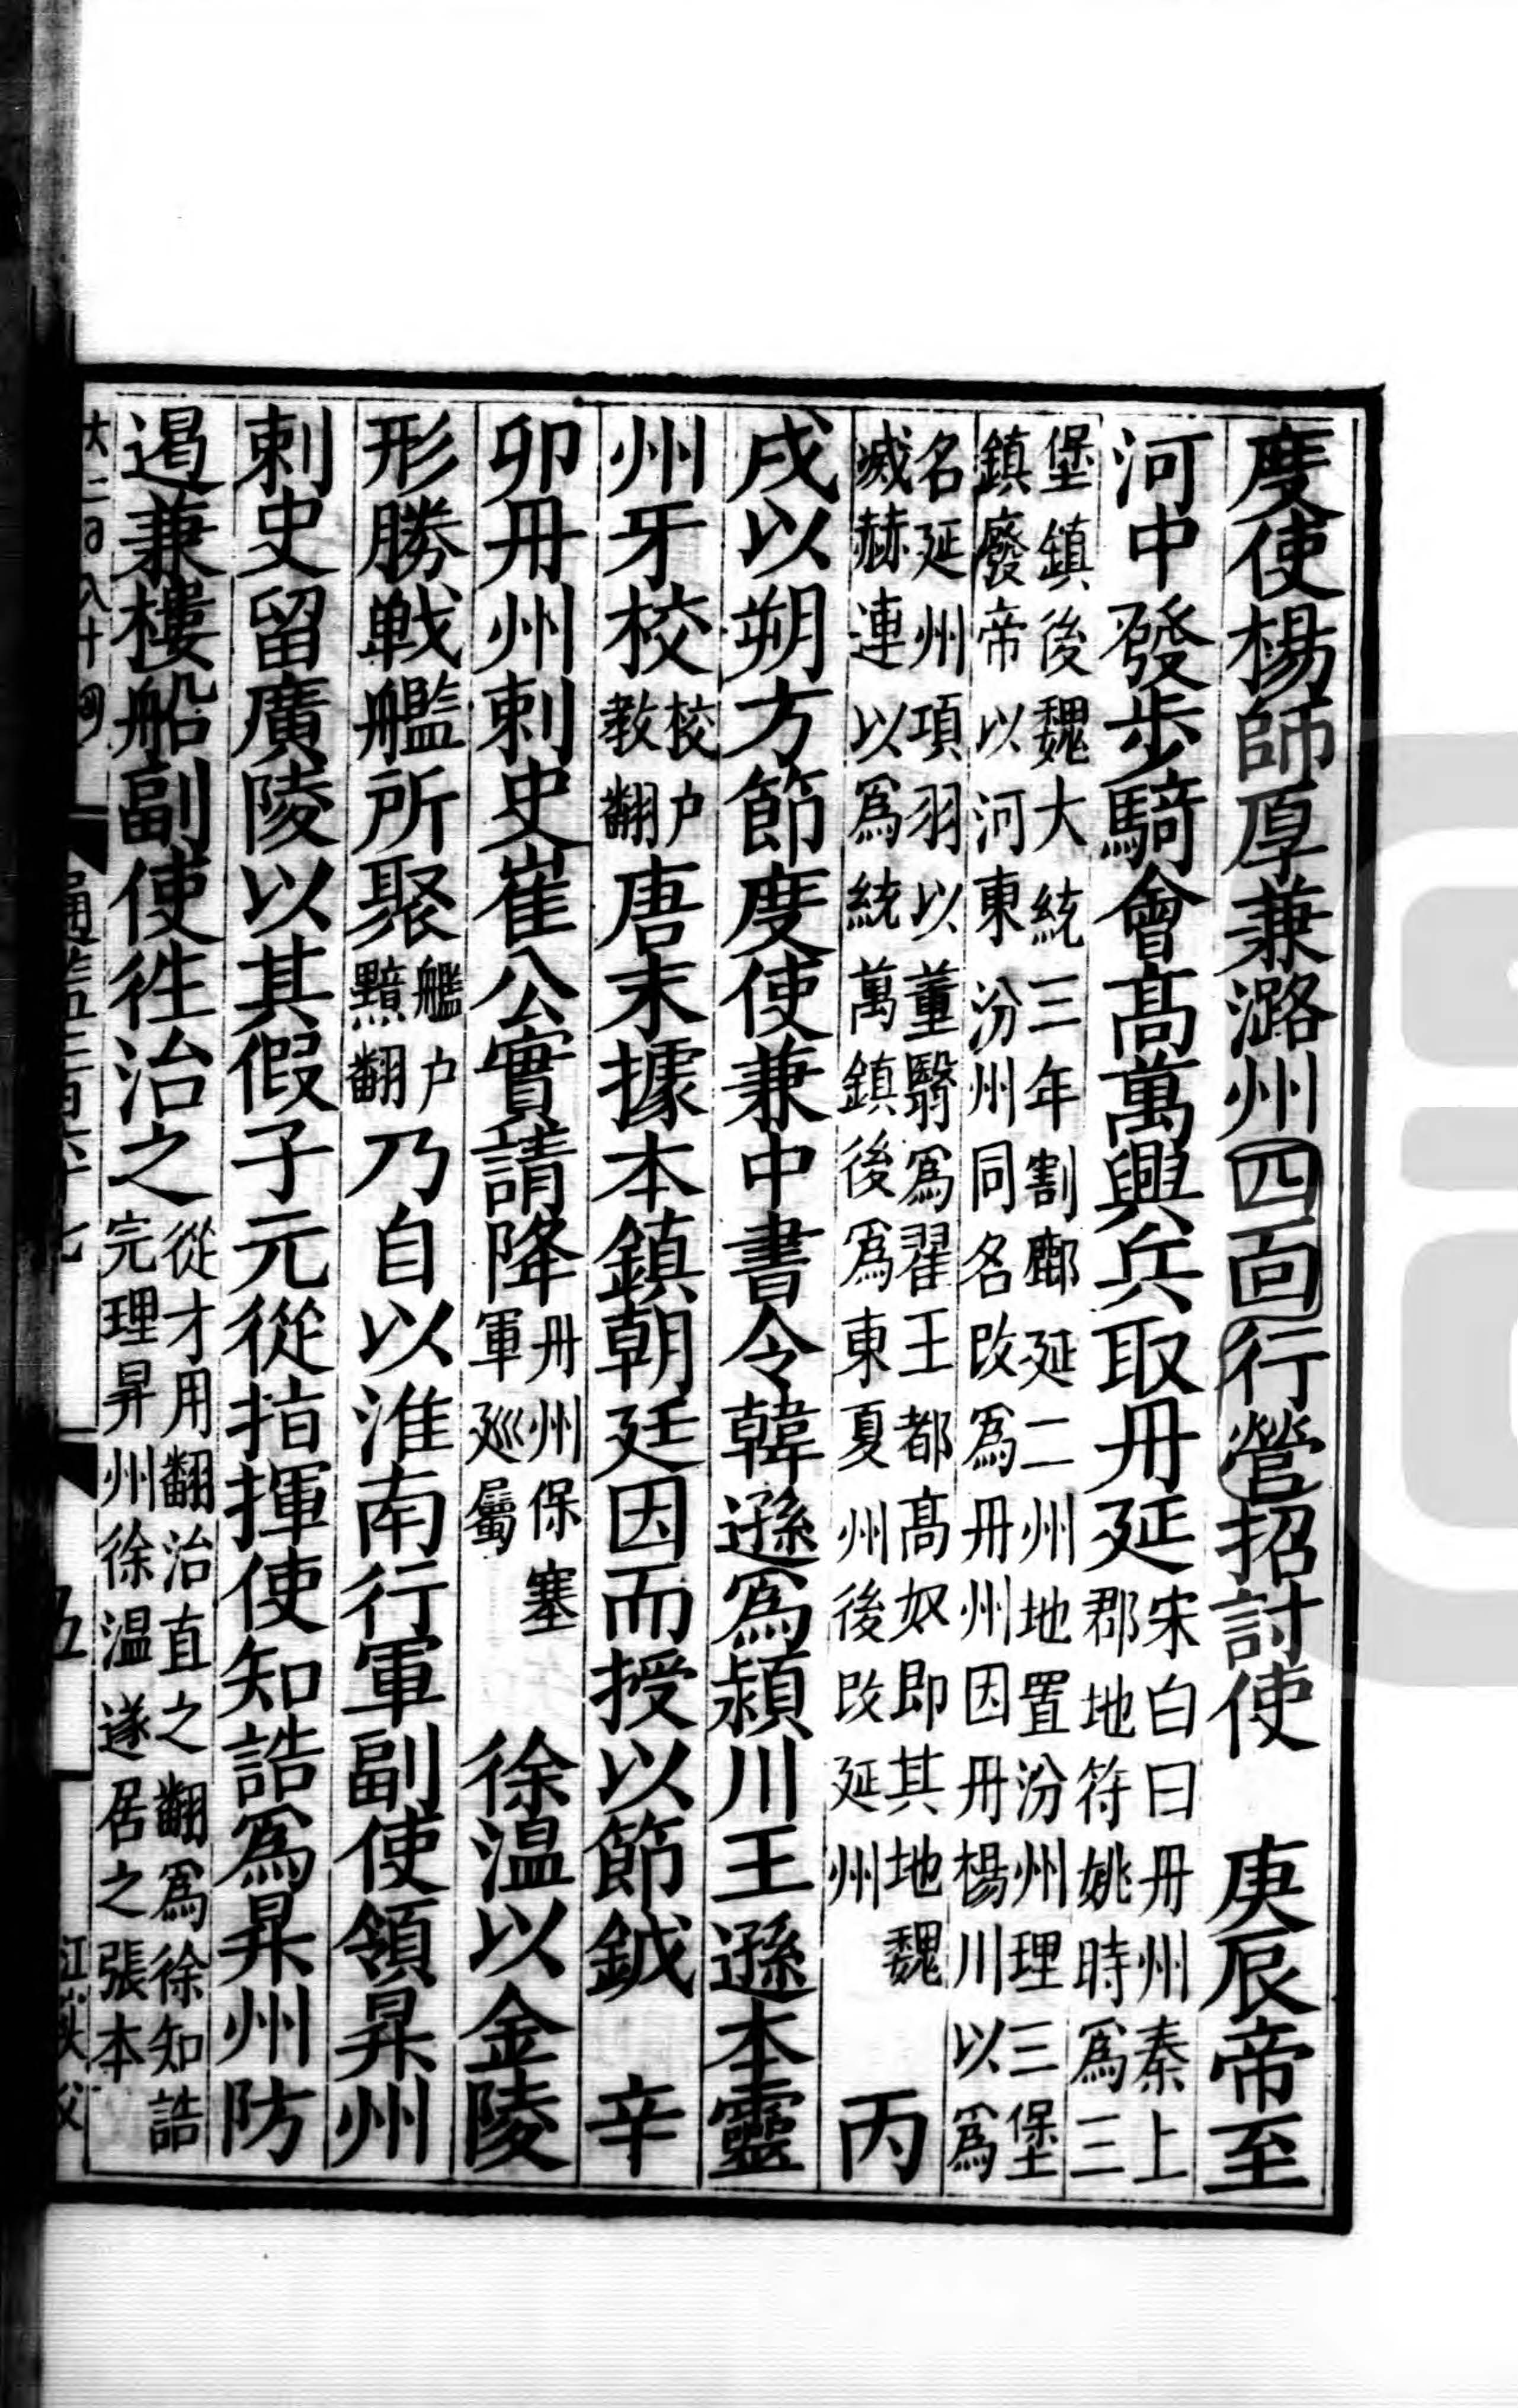 度使楊師厚兼潞州四面行營招討使　庚辰帝至
河中發步騎會高萬興兵取丹延宋白曰丹州秦上
郡地符姚時爲三
堡鎮後魏大統三年割鄜延二州地置汾州理三堡
鎮廢帝以河東汾州同名改爲丹州因丹楊川以爲
名延州項羽以董翳爲翟王都高奴即其地魏
滅赫連以爲統萬鎮後爲東夏州後改延州　丙
戌以朔方節度使兼中書令韓遜爲潁川王遜本靈
州牙校校户
教翻唐末據本鎮朝廷因而授以節鉞　辛
卯丹州刺史崔公實請降丹州保塞
軍巡屬　徐温以金陵
形勝戰艦所聚艦户
黤翻乃自以淮南行軍副使領昇州
刺史留廣陵以其假子元從指揮使知誥爲昇州防
遏兼樓船副使往治之從才用翻治直之翻爲徐知誥
完理昇州徐温遂居之張本